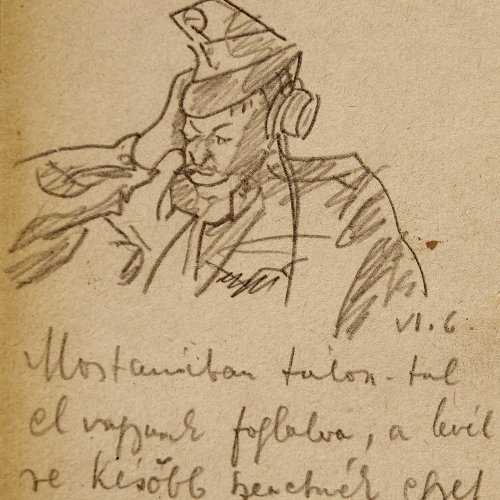 VI. 6
Mostanában túlon-túl
el vagyunk foglalva, a levél
re később